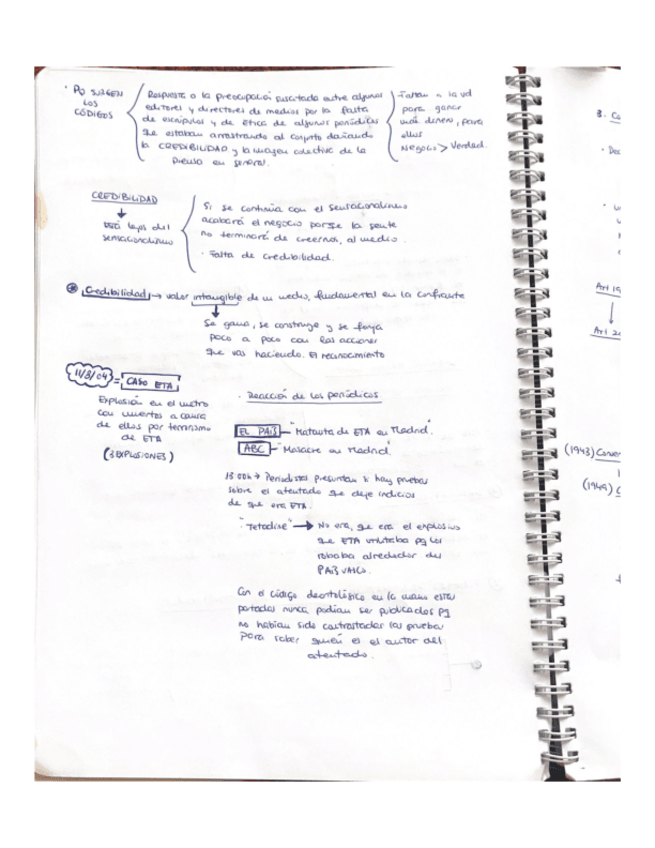 · PQ SURGEN
LOS
CÓDIGOS
Respuesta a la preocupación suscitada entre algunos
editores y directores de medios por la falta
de escrúpulos y de ética de algunos periódicos
que estaban arrastrando al conjunto dañando
la CREDIBILIDAD y la imagen colectiva de la
prensa en general.
- Faltan a la vd
para ganar
más dinero, para
ellos
NEGOCIO > Verdad.
CREDIBILIDAD
↓
Está lejos del
sensacionalismo
Si se continúa con el sensacionalismo
acabará el negocio porque la gente
no terminará de creernos, al medio.
· Falta de credibilidad.
Credibilidad → valor intangible de un medio, fundamental en la confianza
↓
Se gana, se construye y se forja
poco a poco con las acciones
que vas haciendo. El reconocimiento
11/3/04 = CASO ETA
Explosión en el metro
con muertos a causa
de ellos por terrorismo
de ETA
(3 EXPLOSIONES)
· Reacción de los periódicos
EL PAÍS - "Matanza de ETA en Madrid".
ABC - "Masacre en Madrid"
13:00h → Periodistas preguntan si hay pruebas
sobre el atentado que deje indicios
de que era ETA.
"Tetadine" → No era, que era el explosivo
que ETA utilizaba pq los
robaba alrededor del
PAÍS VASCO.
Con el código deontológico en la mano estas
portadas nunca podían ser publicadas pq
no habían sido contrastadas las pruebas
para saber quién es el autor del
atentado.
3. Co
Art 19
↓
Art 20
(1943)
(1949)